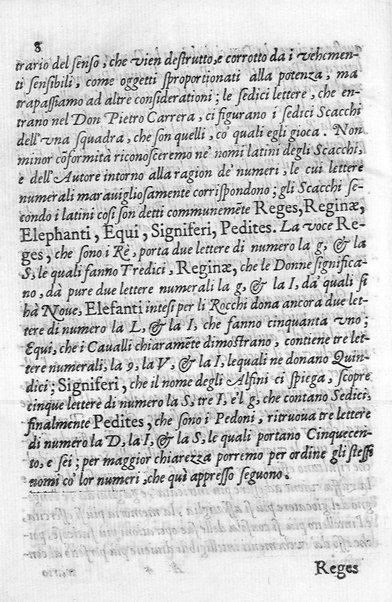 8
trario del senso, che vien destrutto, e corrotto da i vehementi
ti sensibili, come oggetti sproportionati alla potenza, ma
trapassiamo ad altre considerationi; le sedici lettere, che en-
trano nel Don Pietro Carrera, ci figurano i sedici Scacchi
dell'vna squadra, che son quelli, cō quali egli gioca. Non
minor cōformità riconosceremo ne' nomi latini degli Scacchi,
e dell'Autore intorno alla ragion de' numeri, le cui lettere
numerali marauigliosamente corrispondono; gli Scacchi se-
condo i latini così son detti communemēte Reges, Reginæ,
Elephanti, Equi, Signiferi, Pedites. La voce Re-
ges, che sono i Rè, porta due lettere di numero la g, & la
S, le quali fanno Tredici. Reginæ, che le Donne significa-
no, dà pure due lettere numerali la g, & la I, da quali si
hà Noue, Elefanti intesi per li Rocchi dona ancora due let-
tere di numero la L, & la I, che fanno cinquanta vno;
Equi, che i Caualli chiaramēte dimostrano, contiene tre let-
tere numerali, la q, la V, & la I, lequali ne donano Quin-
dici; Signiferi, che il nome degli Alfini ci spiega, scopre
cinque lettere di numero la S, tre I, e'l g, che contano Sedici,
finalmente Pedites, che sono i Pedoni, ritruoua tre lettere
di numero la D, la I, & la S, le quali portano Cinquecen-
to, e sei; per maggior chiarezza porremo per ordine gli stessi
nomi cō lor numeri, che quì appresso seguono.
Reges